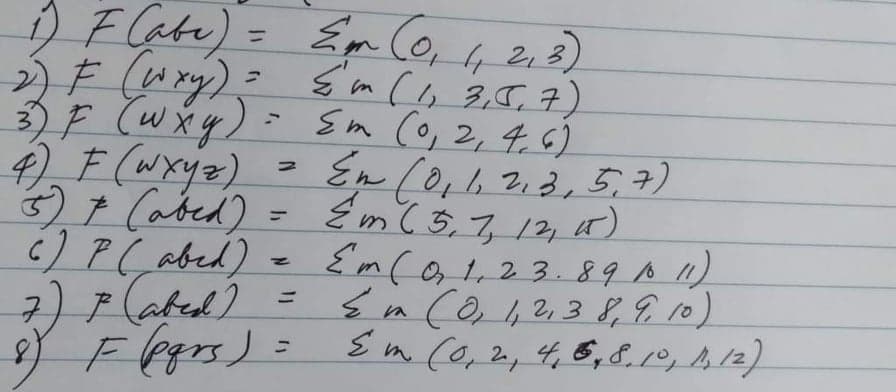 1) F (abc) = Σm (0, 1, 2, 3)
2) F (wxy) = Σm (1, 3, 5, 7)
3) F (wxy) = Σm (0, 2, 4, 6)
4) F (wxyz) = Σm (0, 1, 2, 3, 5, 7)
5) F (abcd) = Σm (5, 7, 12, 15)
6) F (abcd) = Σm (0, 1, 2 3. 8 9 10 11)
7) F (abcd) = Σm (0, 1, 2, 3 8, 9, 10)
8) F (pqrs) = Σm (0, 2, 4, 6, 8, 10, 11, 12)